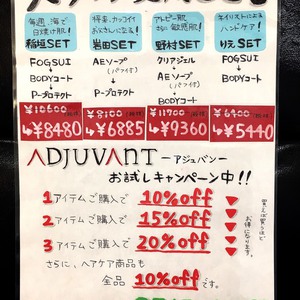 毎週、海で
日焼け肌!
稲垣SET
FOGSUI
BODYコート
P-プロテクト
¥10600
¥8480
将来、カッコイイ
お父さんになる!
岩田SET
AEソープ
(パフ付)
P-プロテクト
¥8100
¥6885
アトピー肌
敏感肌!
野村SET
クリアジェル
AEソープ
(パフ付)
BODYコート
¥11700
¥9360
ネイリストによる
ハンドケア!
りえSET
FOGSUI
BODYコート
¥6400
¥5440
ADJUVANT -アジュバン-
お試しキャンペーン中!!
1アイテムご購入で 10%off
2アイテムご購入で 15%off
3アイテムご購入で 20%off
買えば買うほど
お得になります。
さらに、ヘアケア商品も
全品 10%off です。